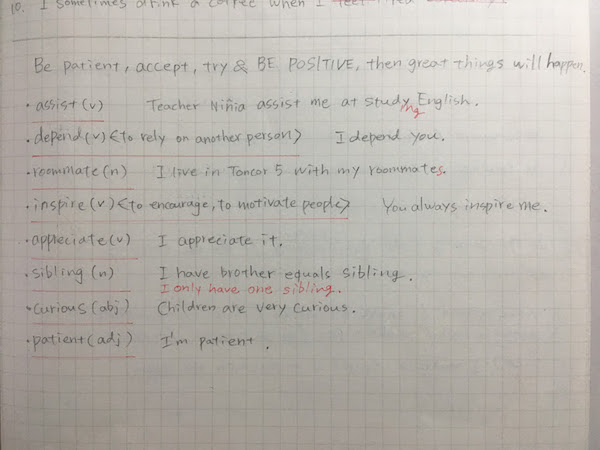 10. I sometimes drink a coffee when I feel tired
Be patient, accept, try & BE POSITIVE, then great things will happen.
• assist (v) Teacher Niñia assist me at studying English.
• depend (v) <to rely on another person> I depend you.
• roommate (n) I live in Toncor 5 with my roommates.
• inspire (v) <to encourage, to motivate people> You always inspire me.
• appreciate (v) I appreciate it.
• sibling (n) I have brother equals sibling.
I only have one sibling.
• curious (abj) Children are very curious.
• patient (adj) I'm patient.